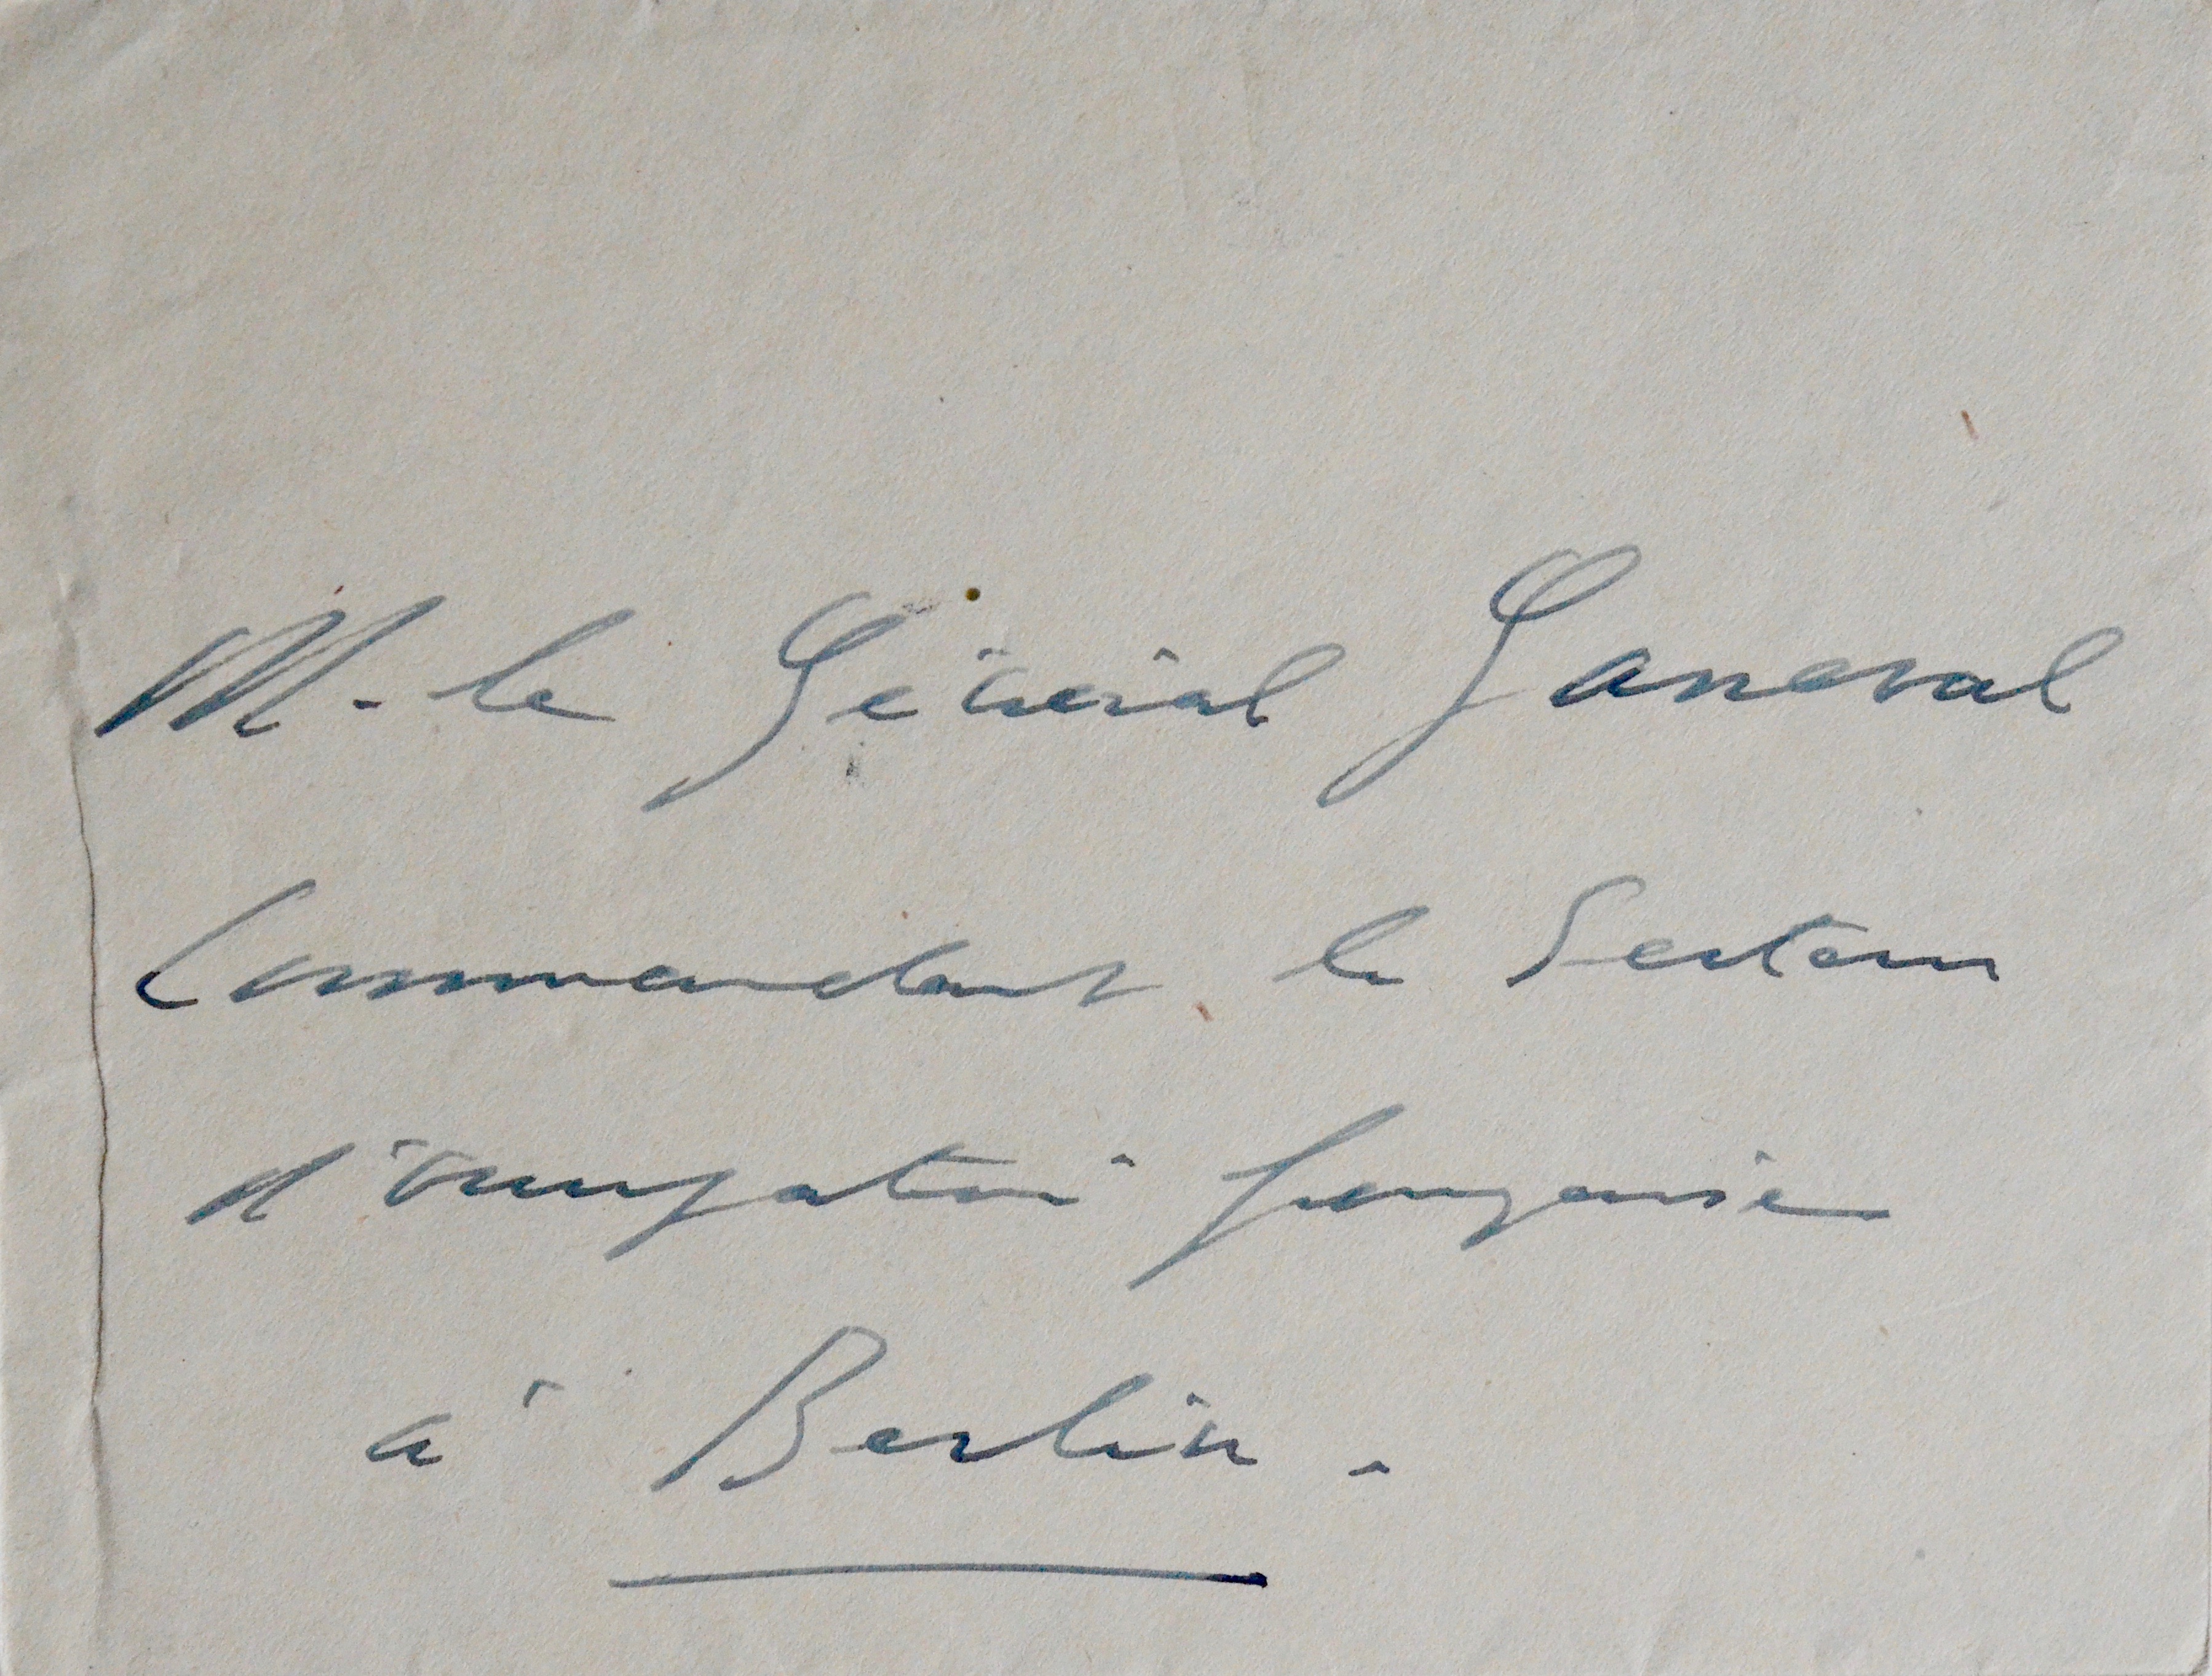 M. le Général Ganeval
Commandant le Secteur
d'occupation française
à Berlin.